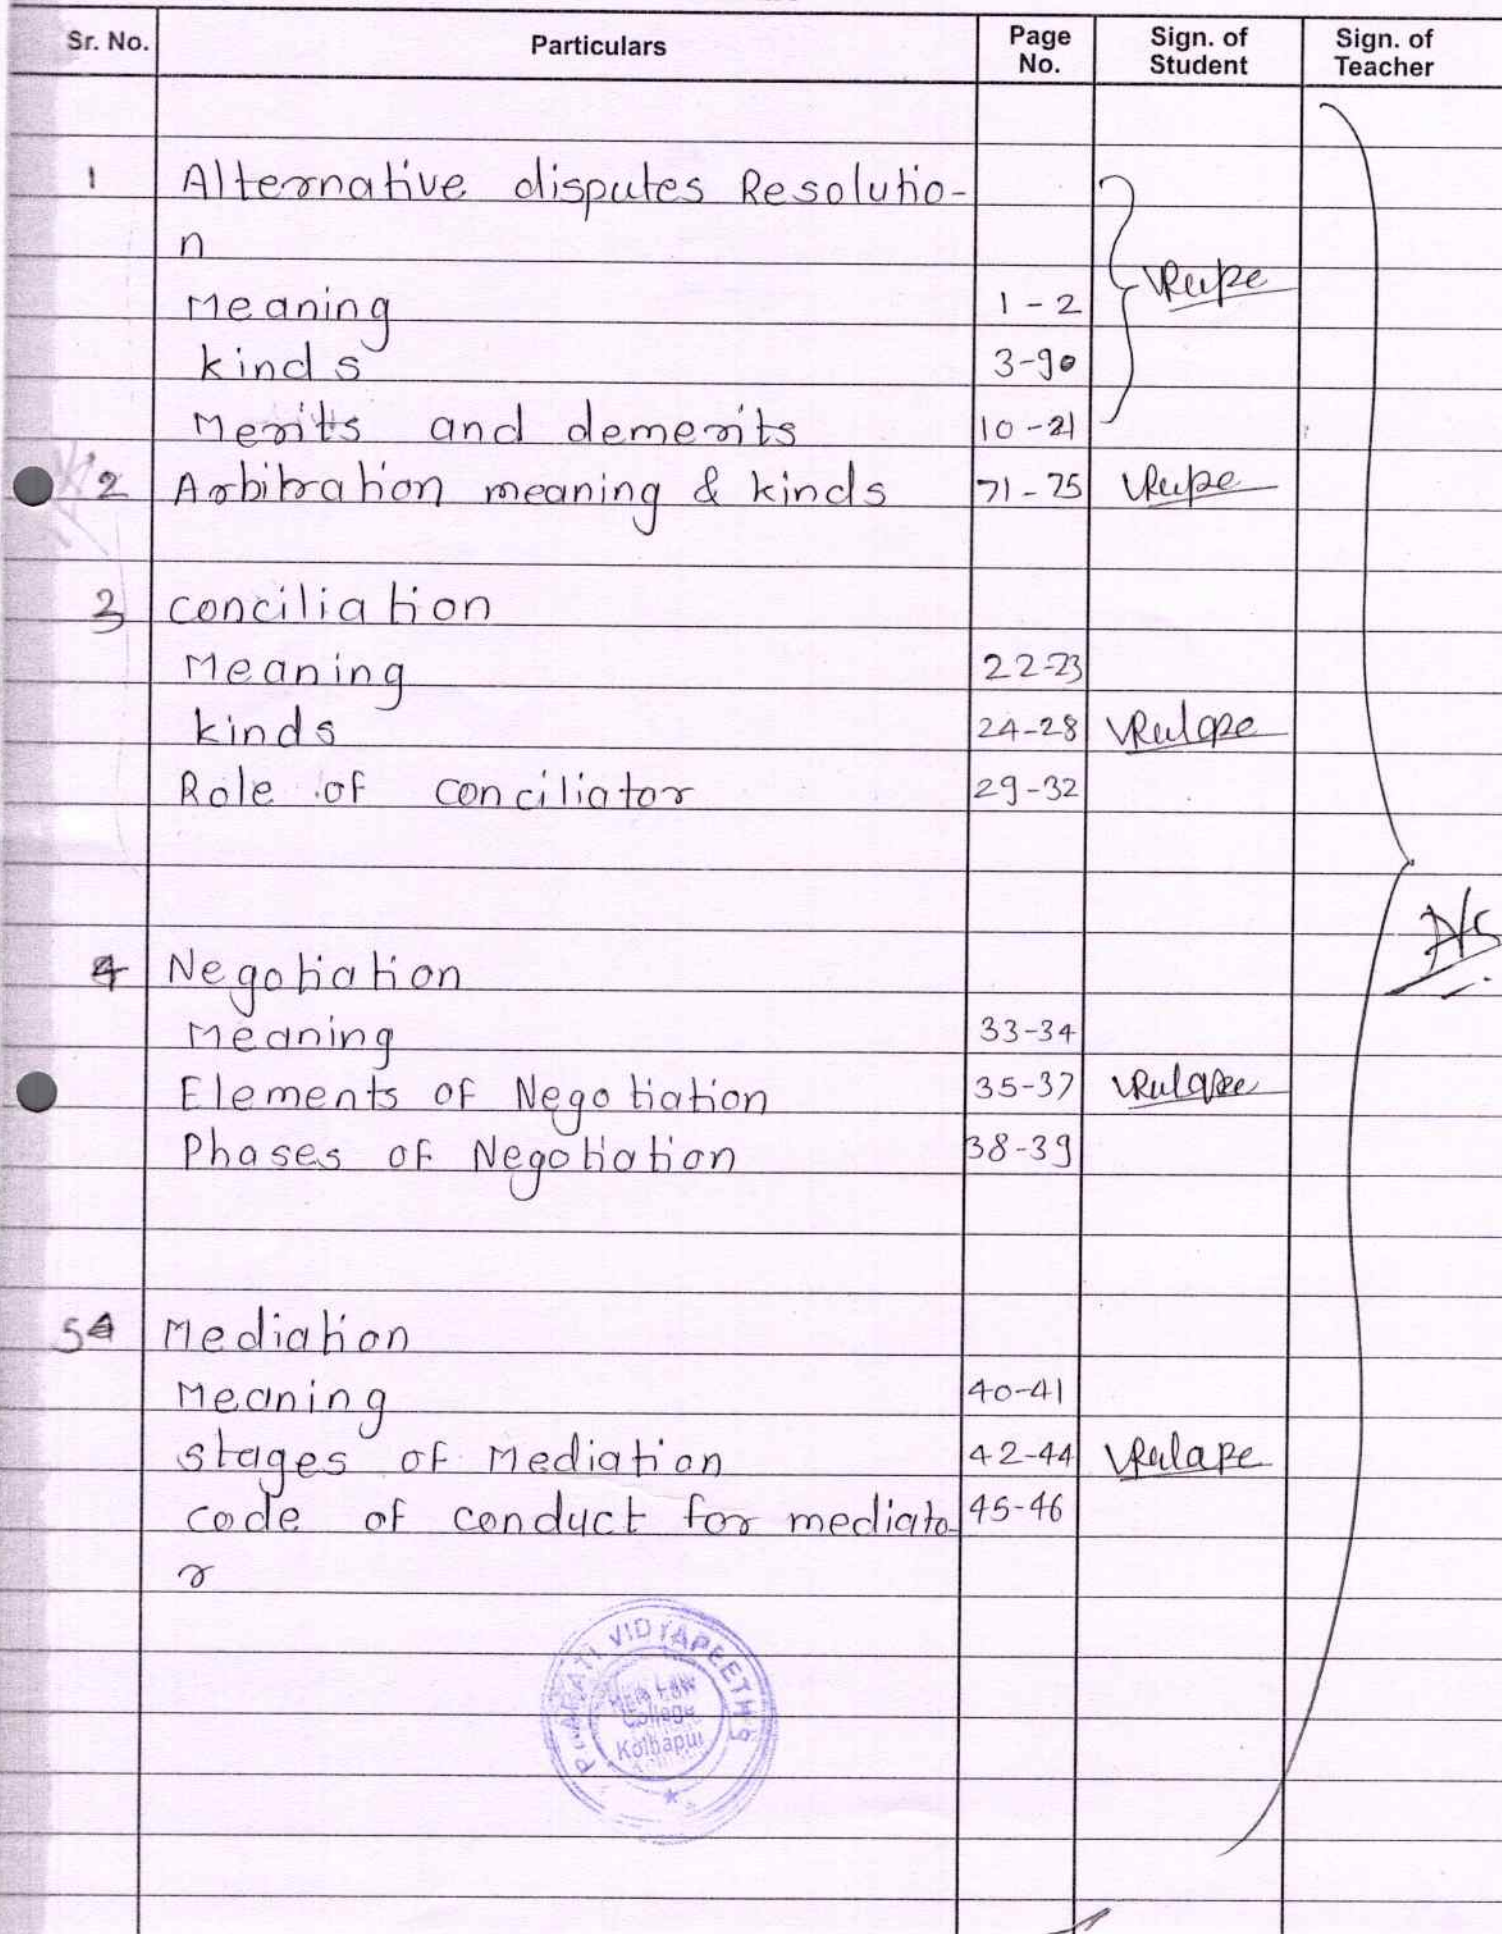 Sr. No. Particulars Page No. Sign. of Student Sign. of Teacher
1 Alternative disputes Resolutio-
n
Meaning 1-2
kinds 3-90
Merits and demerits 10-21
2 Arbitration meaning & kinds 71-75
3 conciliation
Meaning 22-23
kinds 24-28
Role of conciliator 29-32
4 Negotiation
Meaning 33-34
Elements of Negotiation 35-37
Phases of Negotiation 38-39
5 Mediation
Meaning 40-41
stages of Mediation 42-44
code of conduct for mediato- 45-46
r
VIDYAPEETH'S
New Law
College
Kolhapur